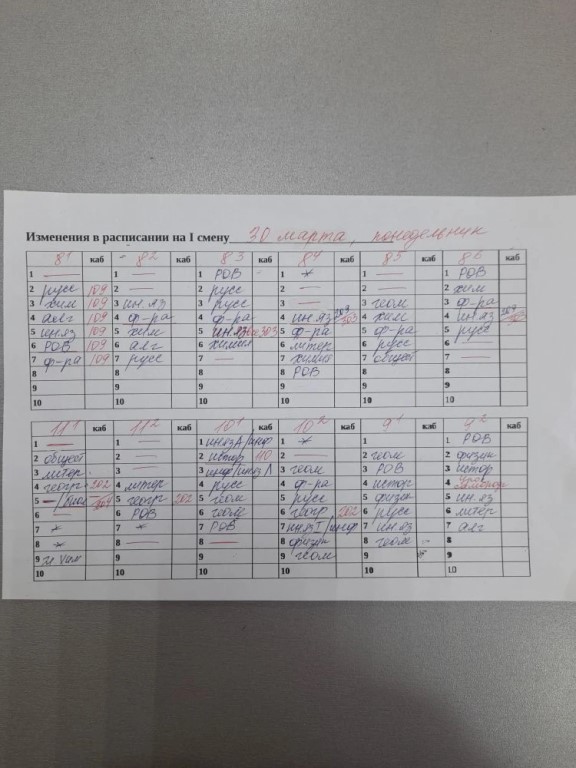 Изменения в расписании на I смену 30 марта, понедельник
8¹ каб 8² каб 8³ каб 8⁴ каб 8⁵ каб 8⁶ каб
1 — 1 — 1 РОВ 1 * 1 — 1 РОВ
2 русс 109 2 — 2 русс 2 — 2 — 2 хим
3 хим 109 3 ин.яз 3 русс 3 — 3 геом 3 ф-ра
4 алг 109 4 ф-ра 4 ф-ра 4 ин.яз 303 4 хим 4 ин.яз
5 ин.яз 109 5 хим 5 ин.яз 303 5 ф-ра 5 ф-ра 5 русс
6 РОВ 109 6 алг 6 химия 6 литер 6 русс 6
7 ф-ра 109 7 русс 7 — 7 химия 7 общест 7 —
8 8 8 8 РОВ 8 8
9 9 9 9 9 9
10 10 10 10 10 10
11¹ каб 11² каб 10¹ каб 10² каб 9¹ каб 9² каб
1 — 1 — 1 ин.яз А/инф 1 * 1 1 РОВ
2 общест 2 — 2 истор 110 2 — 2 геом 2 физик
3 литер. 3 — 3 инф/ин.яз Л 3 геом 3 РОВ 3 истор
4 геогр 202 4 литер 4 русс 4 ф-ра 4 истор 4
5 5 геогр 202 5 геом 5 русс 5 физик 5 ин.яз
6 — 6 РОВ 6 геом 6 геогр 202 6 русс 6 литер
7 * 7 * 7 РОВ 7 ин.яз Г/инф 7 ин.яз 7 алг
8 * 8 — 8 — 8 физик 8 геом 8
9 9 9 9 геом 9 9
10 10 10 10 10 10